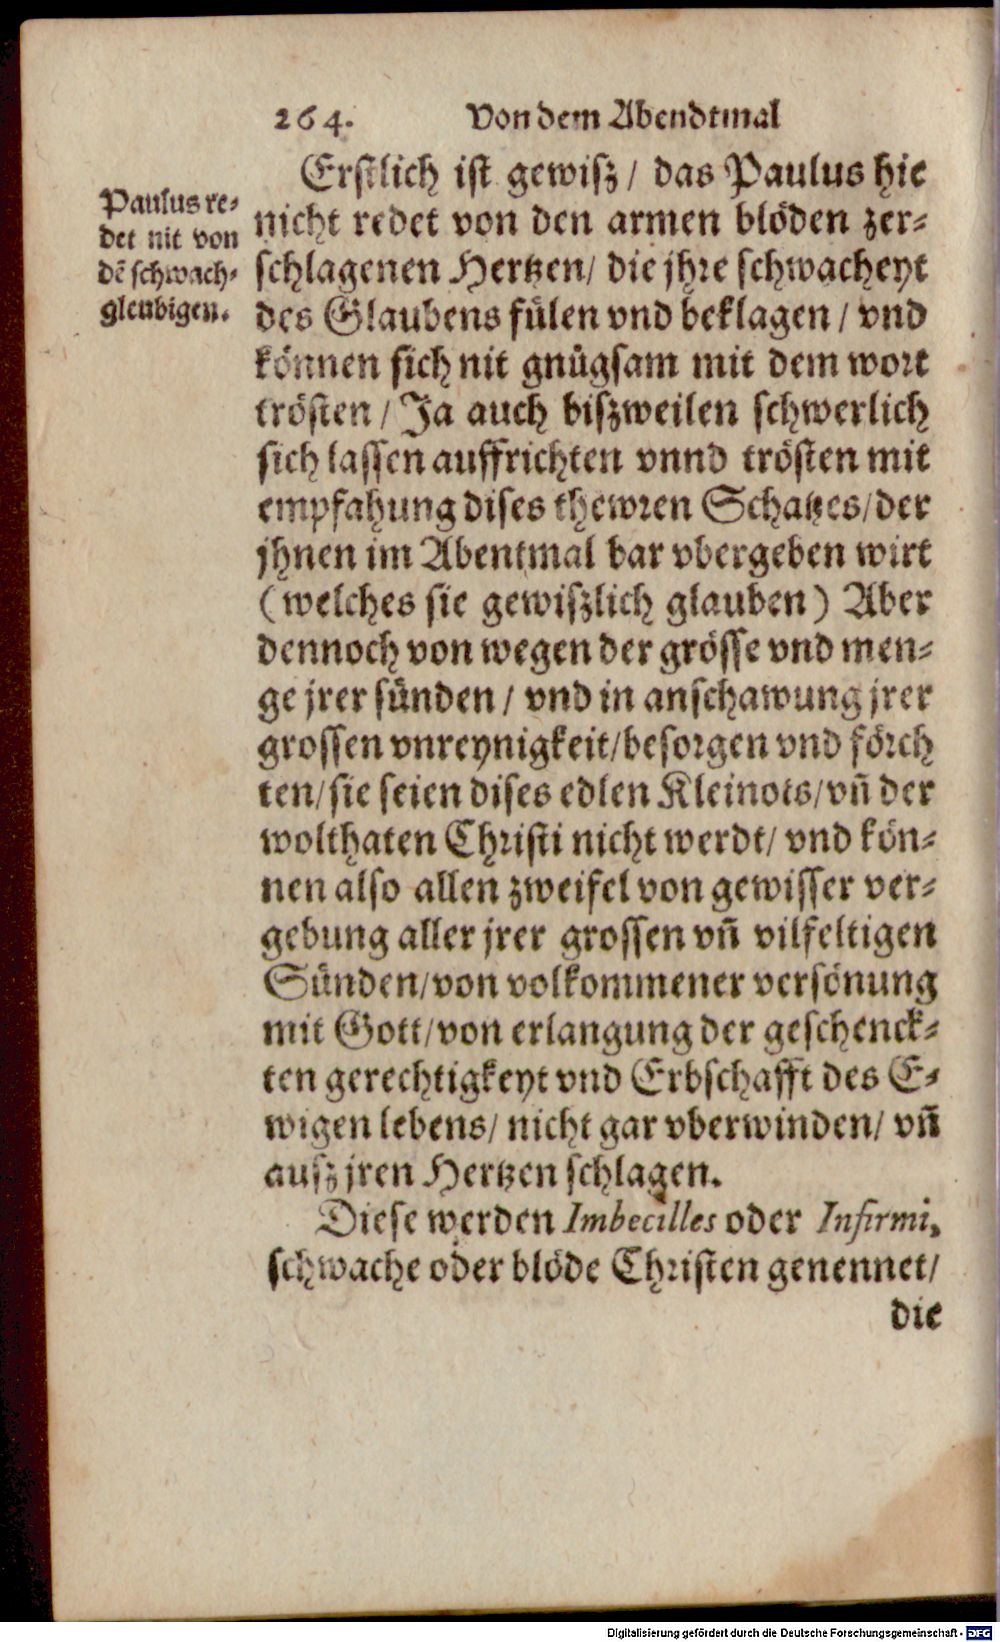 264. Von dem Abendtmal
Erstlich ist gewisz / das Paulus hie
nicht redet von den armen blöden zer-
schlagenen Hertzen / die jhre schwacheyt
des Glaubens fülen vnd beklagen / vnd
können sich nit gnügsam mit dem wort
trösten / Ja auch biszweilen schwerlich
sich lassen auffrichten vnnd trösten mit
empfahung dises thewren Schatzes / der
jhnen im Abentmal dar vbergeben wirt
(welches sie gewiszlich glauben) Aber
dennoch von wegen der grösse vnd men-
ge jrer sünden / vnd in anschawung jrer
grossen vnreynigkeit / besorgen vnd förch
ten / sie seien dises edlen Kleinots / vñ der
wolthaten Christi nicht werdt / vnd kön-
nen also allen zweifel von gewisser ver-
gebung aller jrer grossen vñ vilfeltigen
Sünden / von volkommener versönung
mit Gott / von erlangung der geschenck-
ten gerechtigkeyt vnd Erbschafft des E-
wigen lebens / nicht gar vberwinden / vñ
ausz jren Hertzen schlagen.
Diese werden Imbecilles oder Infirmi,
schwache oder blöde Christen genennet /
die
Paulus re-
det nit von
dē schwach-
gleubigen.
Digitalisierung gefördert durch die Deutsche Forschungsgemeinschaft - DFG